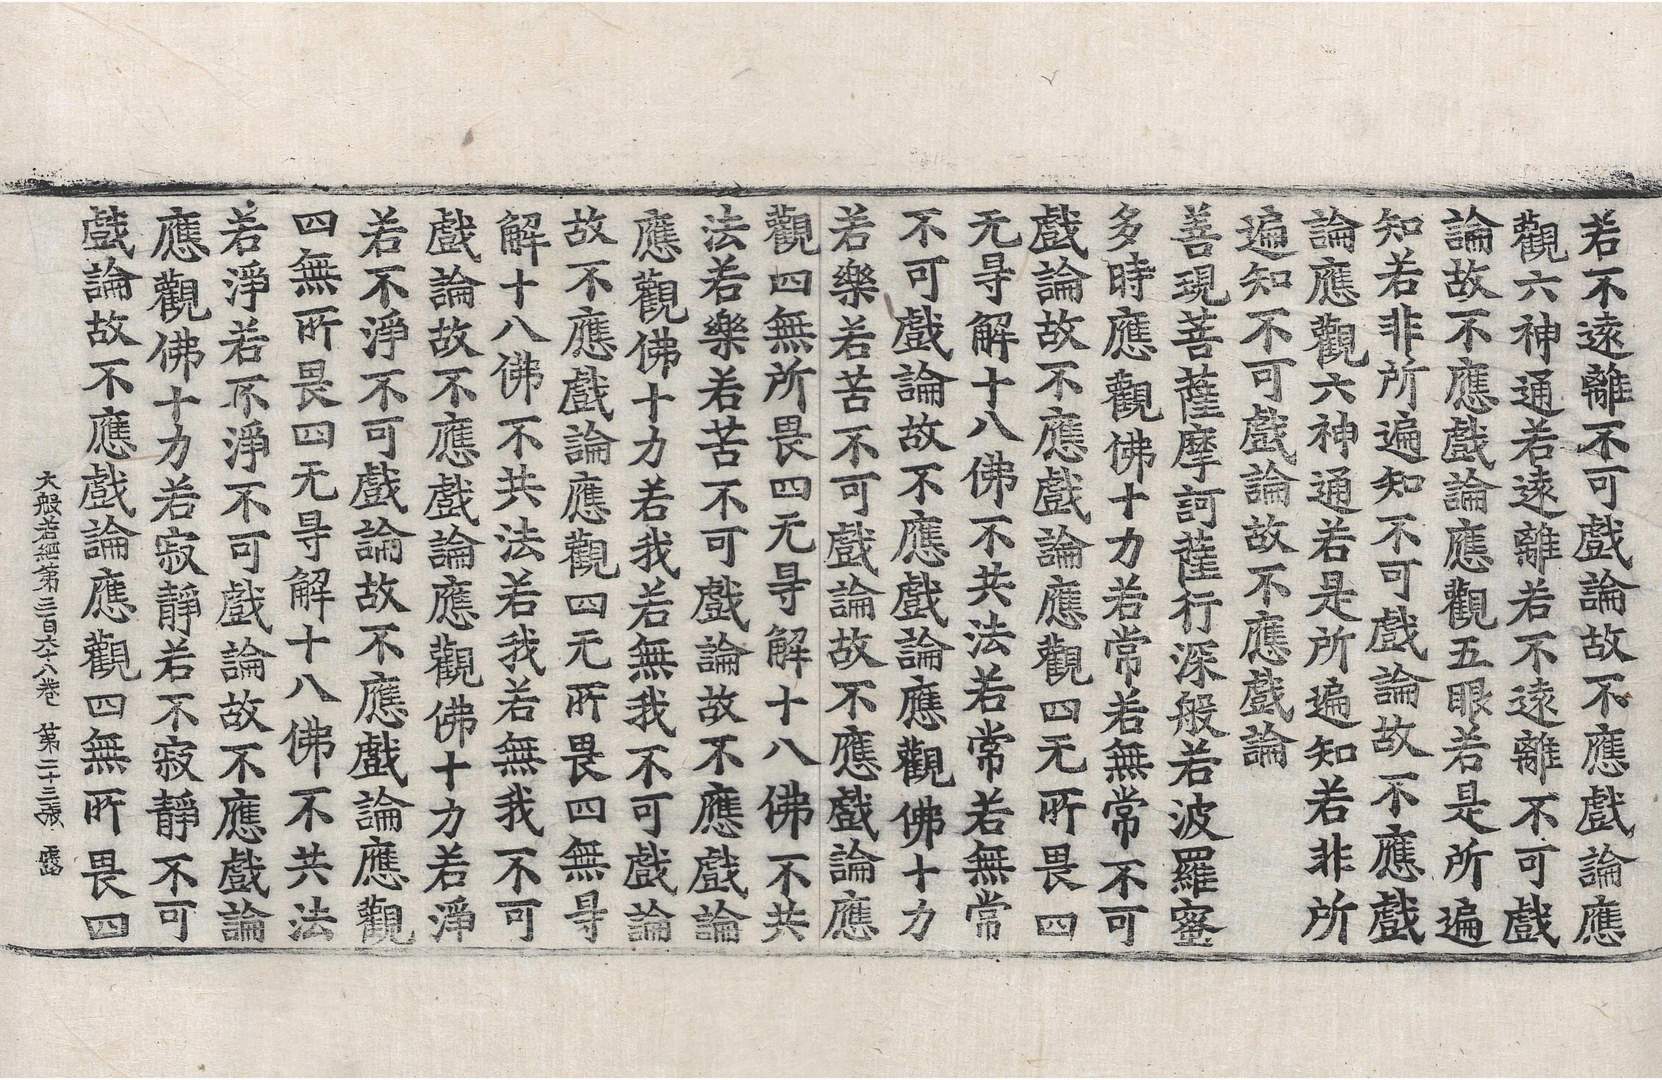 若不遠離不可戲論故不應戲論應
觀六神通若遠離若不遠離不可戲
論故不應戲論應觀五眼若是所遍
知若非所遍知不可戲論故不應戲
論應觀六神通若是所遍知若非所
遍知不可戲論故不應戲論
善現菩薩摩訶薩行深般若波羅蜜
多時應觀佛十力若常若無常不可
戲論故不應戲論應觀四无所畏四
无㝵解十八佛不共法若常若無常
不可戲論故不應戲論應觀佛十力
若樂若苦不可戲論故不應戲論應
觀四無所畏四无㝵解十八佛不共
法若樂若苦不可戲論故不應戲論
應觀佛十力若我若無我不可戲論
故不應戲論應觀四无所畏四無㝵
解十八佛不共法若我若無我不可
戲論故不應戲論應觀佛十力若淨
若不淨不可戲論故不應戲論應觀
四無所畏四无㝵解十八佛不共法
若淨若不淨不可戲論故不應戲論
應觀佛十力若寂靜若不寂靜不可
戲論故不應戲論應觀四無所畏四
大般若經第三百六十八卷 第二十三張 露